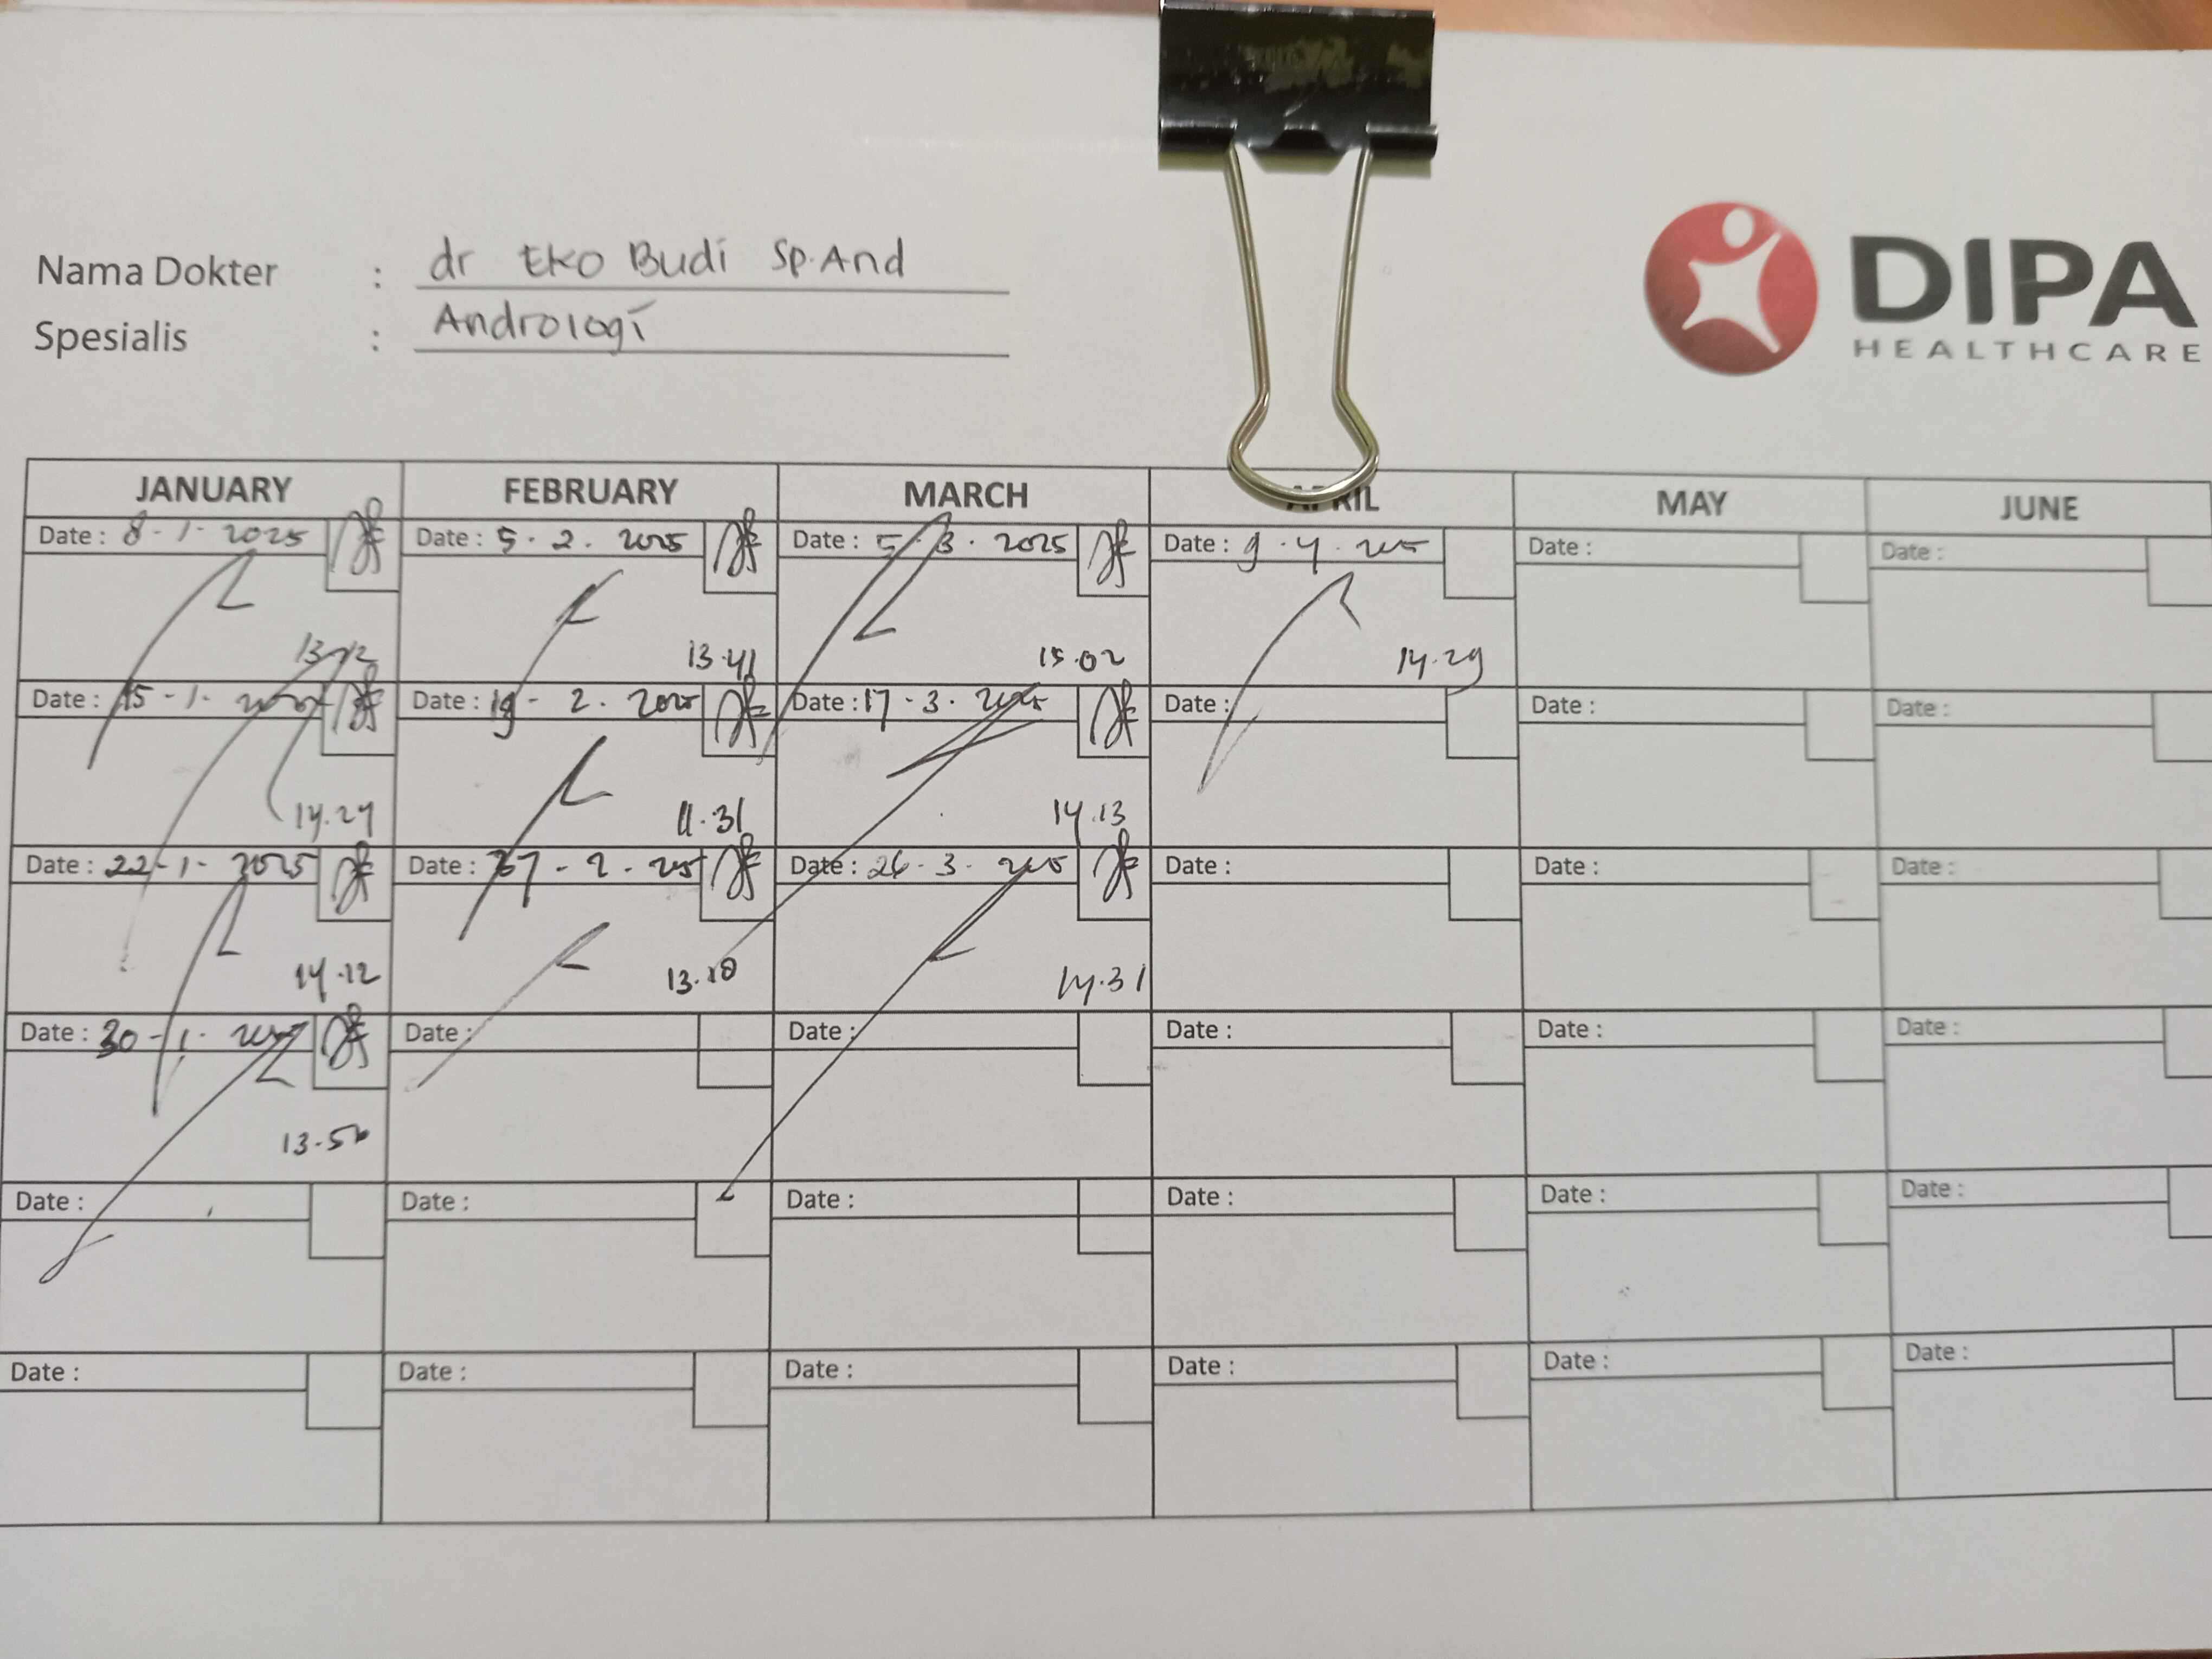 Nama Dokter : dr Eko Budi Sp.And
Spesialis : Andrologi
DIPA
HEALTHCARE
JANUARY FEBRUARY MARCH APRIL MAY JUNE
Date : 8-1-2025 Date : 5.2.2025 Date : 5.3.2025 Date : 9.4.2025 Date : Date :
13.12 13.41 15.02 14.29
Date : 15-1-2025 Date : 19-2.2025 Date : 17-3.2025 Date : Date : Date :
14.27 11.31 14.13
Date : 22-1-2025 Date : 27-2-2025 Date : 26-3-2025 Date : Date : Date :
14.12 13.10 14.31
Date : 30-1-2025 Date : Date : Date : Date : Date :
13.56
Date : Date : Date : Date : Date : Date :
Date : Date : Date : Date : Date : Date :